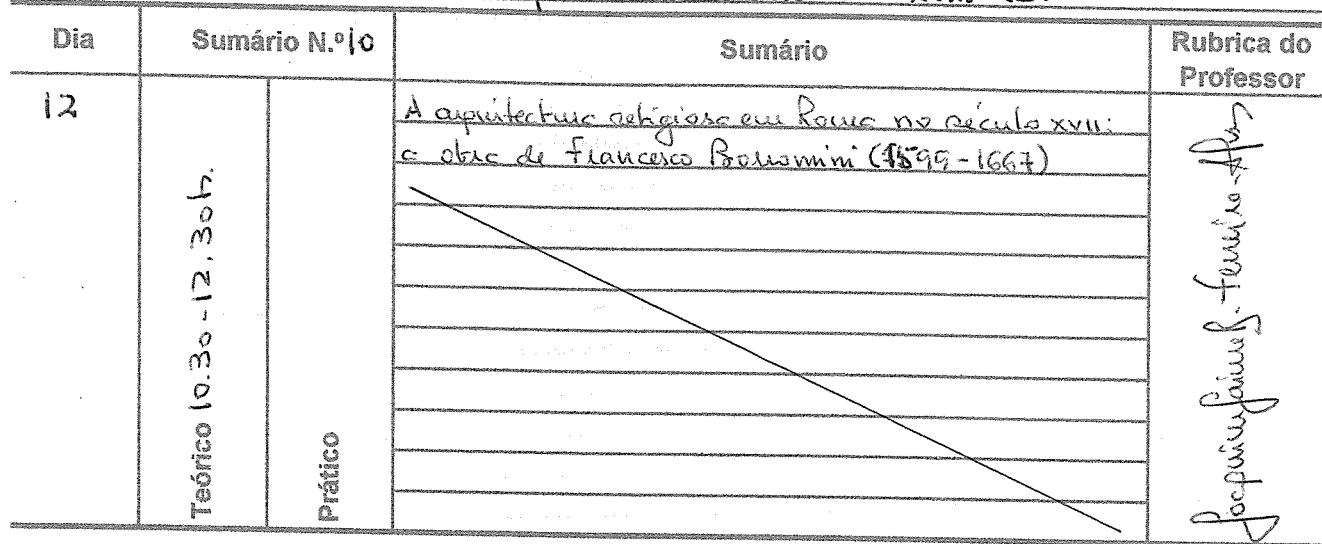 Dia
Sumário N.º 10
Sumário
Rubrica do
Professor
12
Teórico 10.30-12.30h.
Prático
A arquitectura religiosa em Roma no século XVII:
a obra de Francesco Borromini (1599-1667)
Joaquim Jaime B. Ferreira-Alves